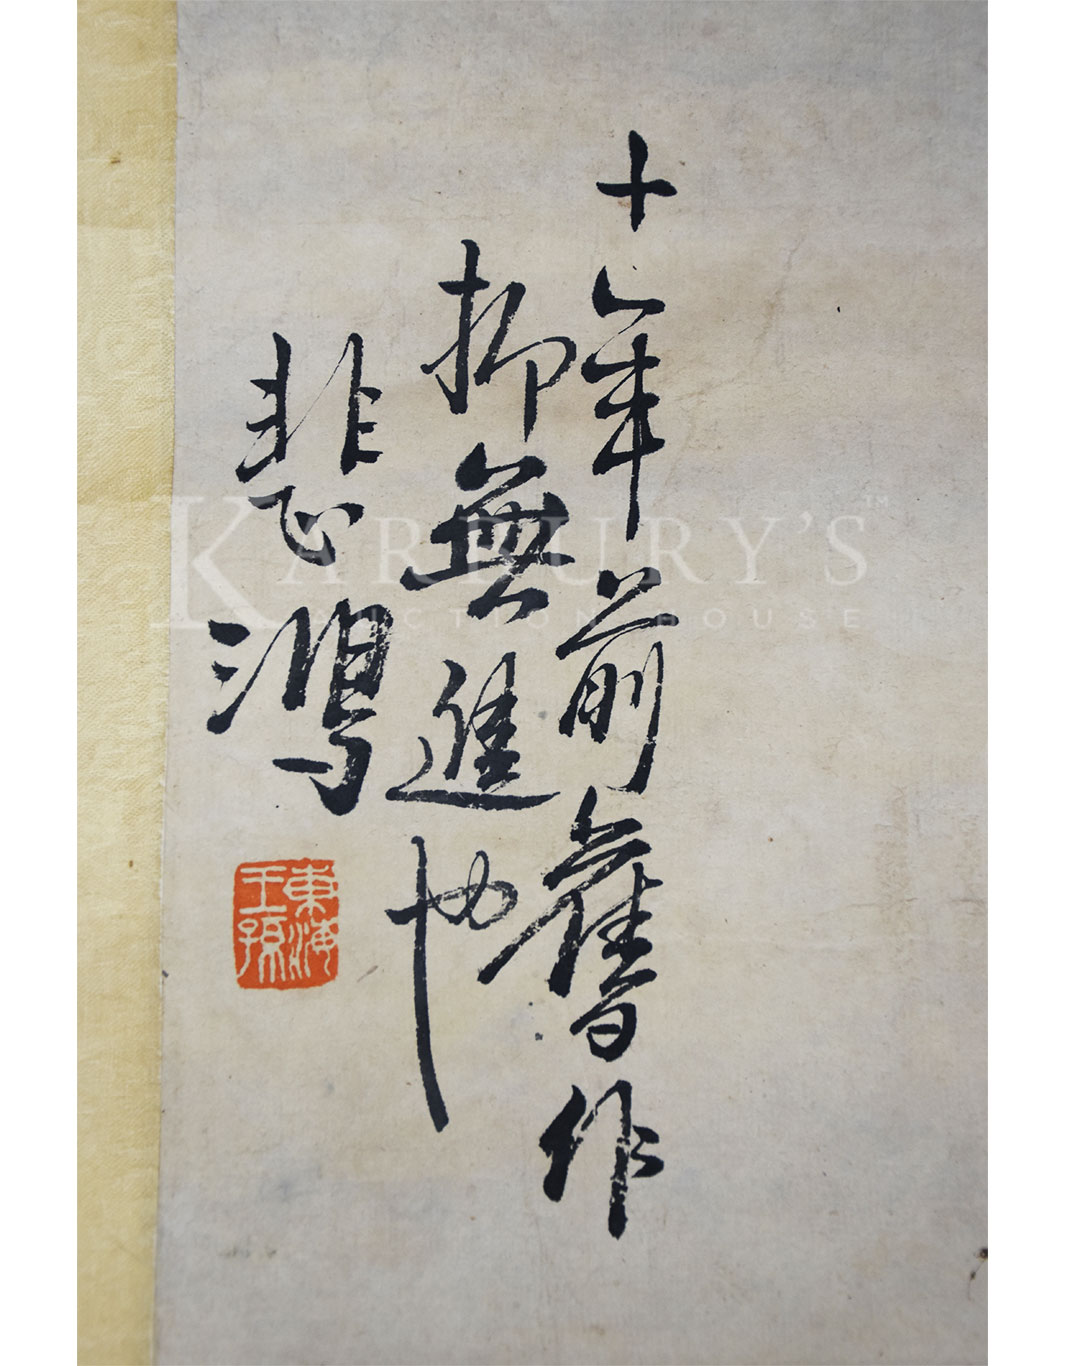 十年前舊作
抑無進也
悲鴻
東海王孫
KARBURY'S™
AUCTION HOUSE